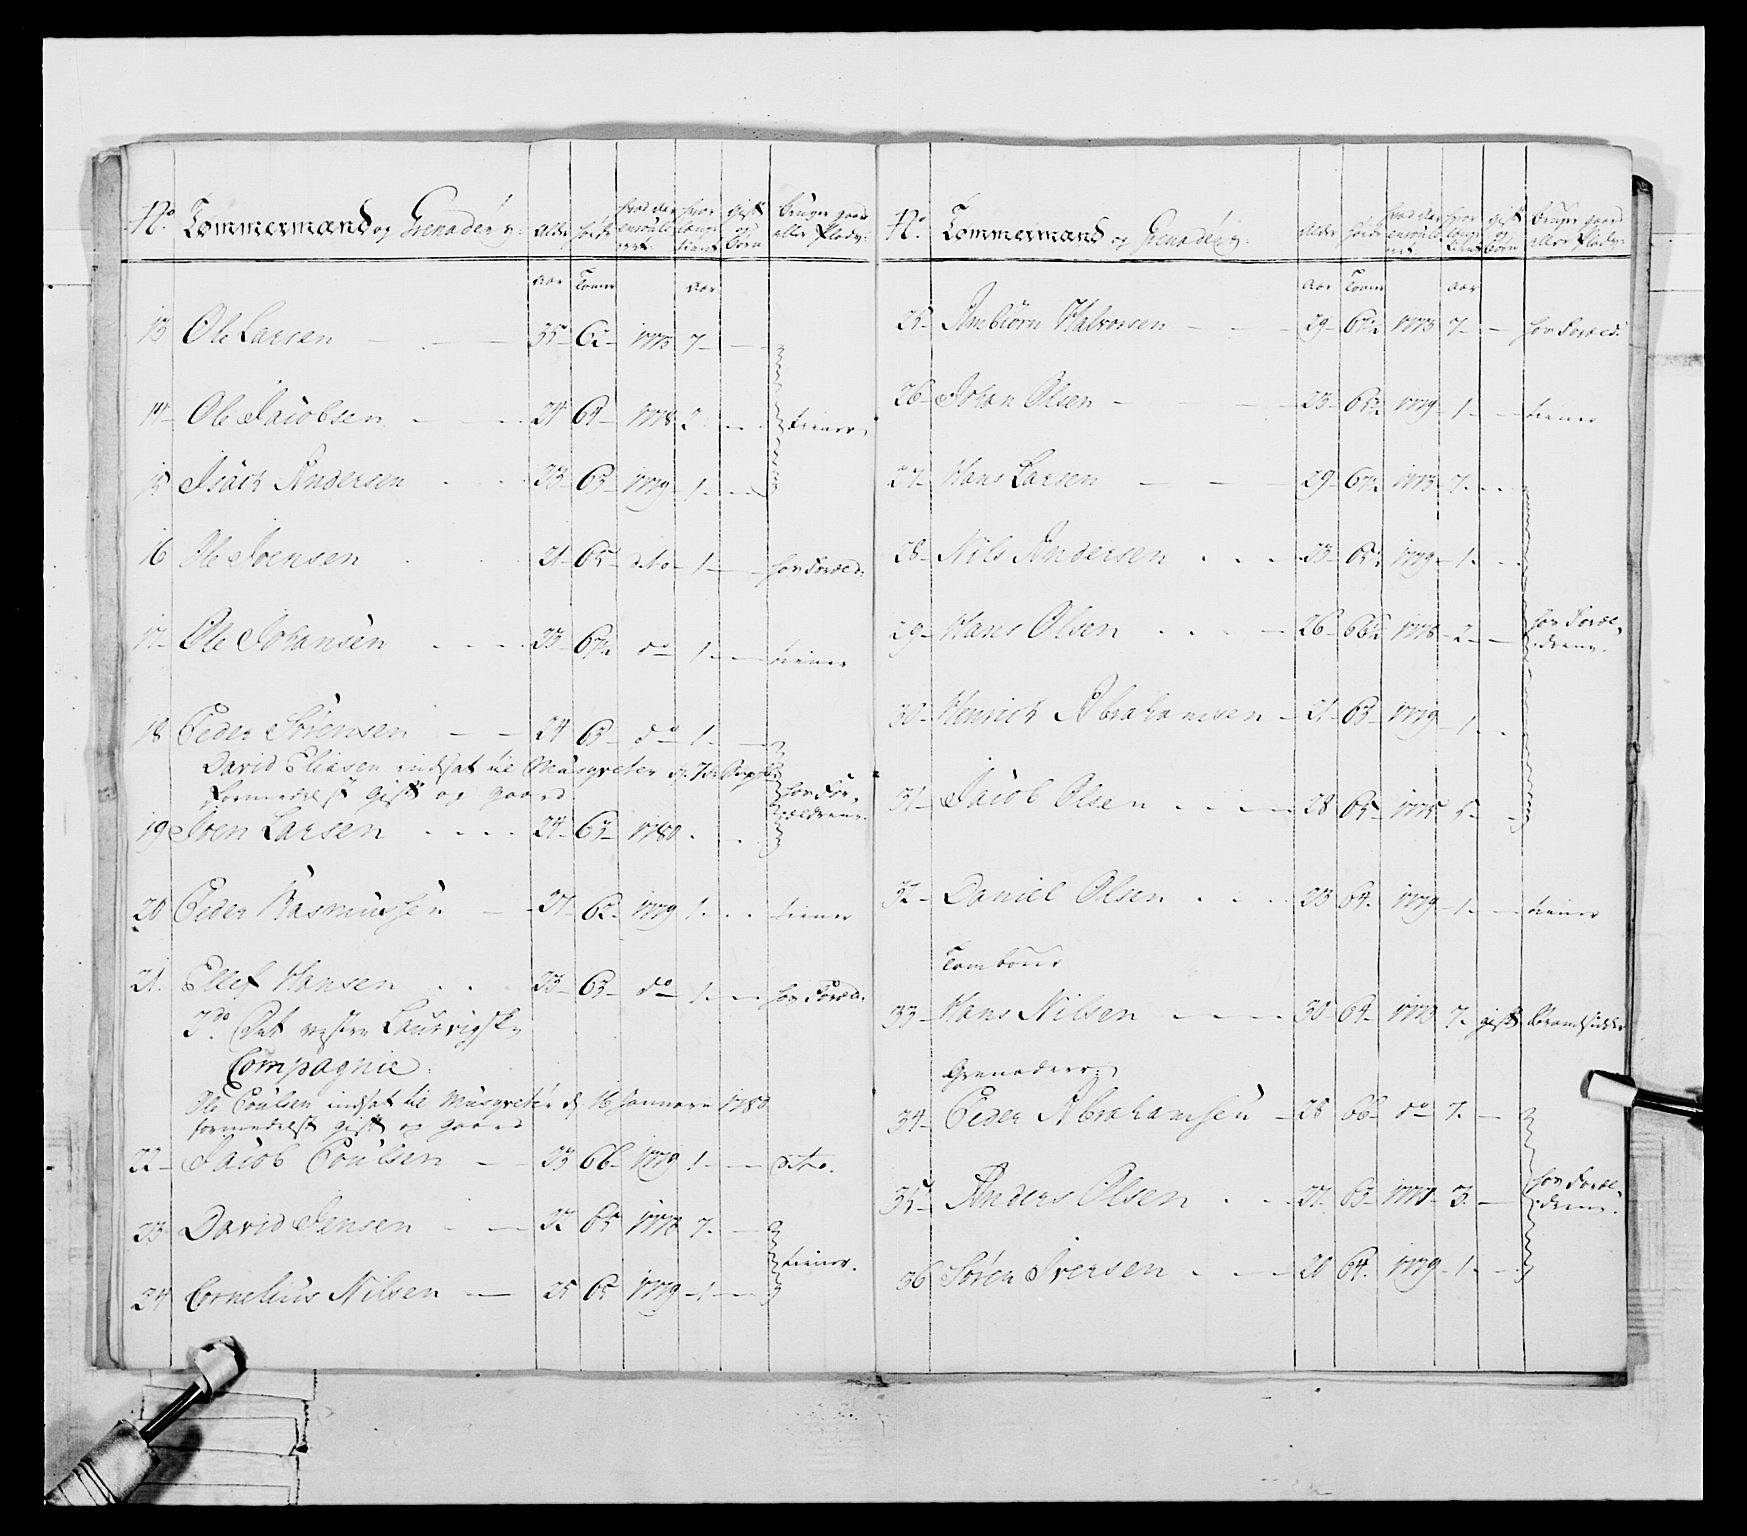 No. Tømmermænd og Grenadērer: alder høide hvad Aar enroule- ret hvor længe tient gift og børn bruger gaard eller Pladz:
aar Tomr aar
13 Ole Larsen 35 62 1773 7
14 Ole Jacobsen 24 64 1778 2 tiener
15 Isach Andersen 23 63 1779 1
16 Ole Joensen 21 65 dito 1 hos Foræld:
17 Ole Johansen 23 67 do 1 tiener
18 Peder Sörensen 24 63 do 1
David Eliasen indsat til Musqveter
formedelst gift og gaard hos For-
19 Iver Larsen 24 63 1780 ældrene
20 Peder Rasmussen 27 62 1779 1 tiener
21 Ellef Hansen 23 63 do 1 hos Foræld:
3do Det vestre Laurvigske
Compagnie
Ole Poulsen indsat til Musqveter d. 16 Januari 1780
formedelst gift og gaard
22 Jacob Poulsen 23 66 1779 1 dito
23 David Jensen 32 65 1773 7
tiener
24 Cornelius Nilsen 25 65 1779 1
No. Tømmermænd og Grenadērer: alder høide hvad Aar enroule- ret hvor længe tient gift og børn bruger gaard eller Pladz:
aar Tomr aar
25 Ambiörn Halvorsen 29 1773 7 hos Foræld:
26 Johan Olsen 23 1779 1 tiener
27 Hans Larsen 29 1773 7
28 Nils Andersen 23 1779 1
29 Hans Olsen 26 1778 2 hos Foræl-
drene
30 Henrich Abrahamsen 21 63 1779 1
31 Jacob Olsen 28 65 1775 5
32 Daniel Olsen 23 64 1779 1 tiener
Tambour
33 Hans Nilsen 30 64 1773 7 gift Strandsidder
Grenaderer
34 Peder Abrahamsen 28 66 do 7
35 Anders Olsen 27 63 1777 3 hos Foræl-
drene
36 Sören Iversen 20 64 1779 1